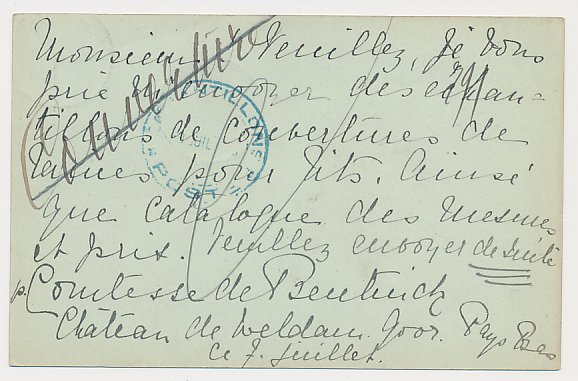 Monsieur, Veuillez, je vous
prie m'envoyer des echan-
tillons de Couvertures de
laines pour lits. Ainsi
que Catalogue des mesures
et prix. Veuillez envoyer de suite
p. Comtesse de Bentinck
Château de Weldam. Goor. Pays Bas
Ce 7. Juillet.
ECHANTILLONS
POST